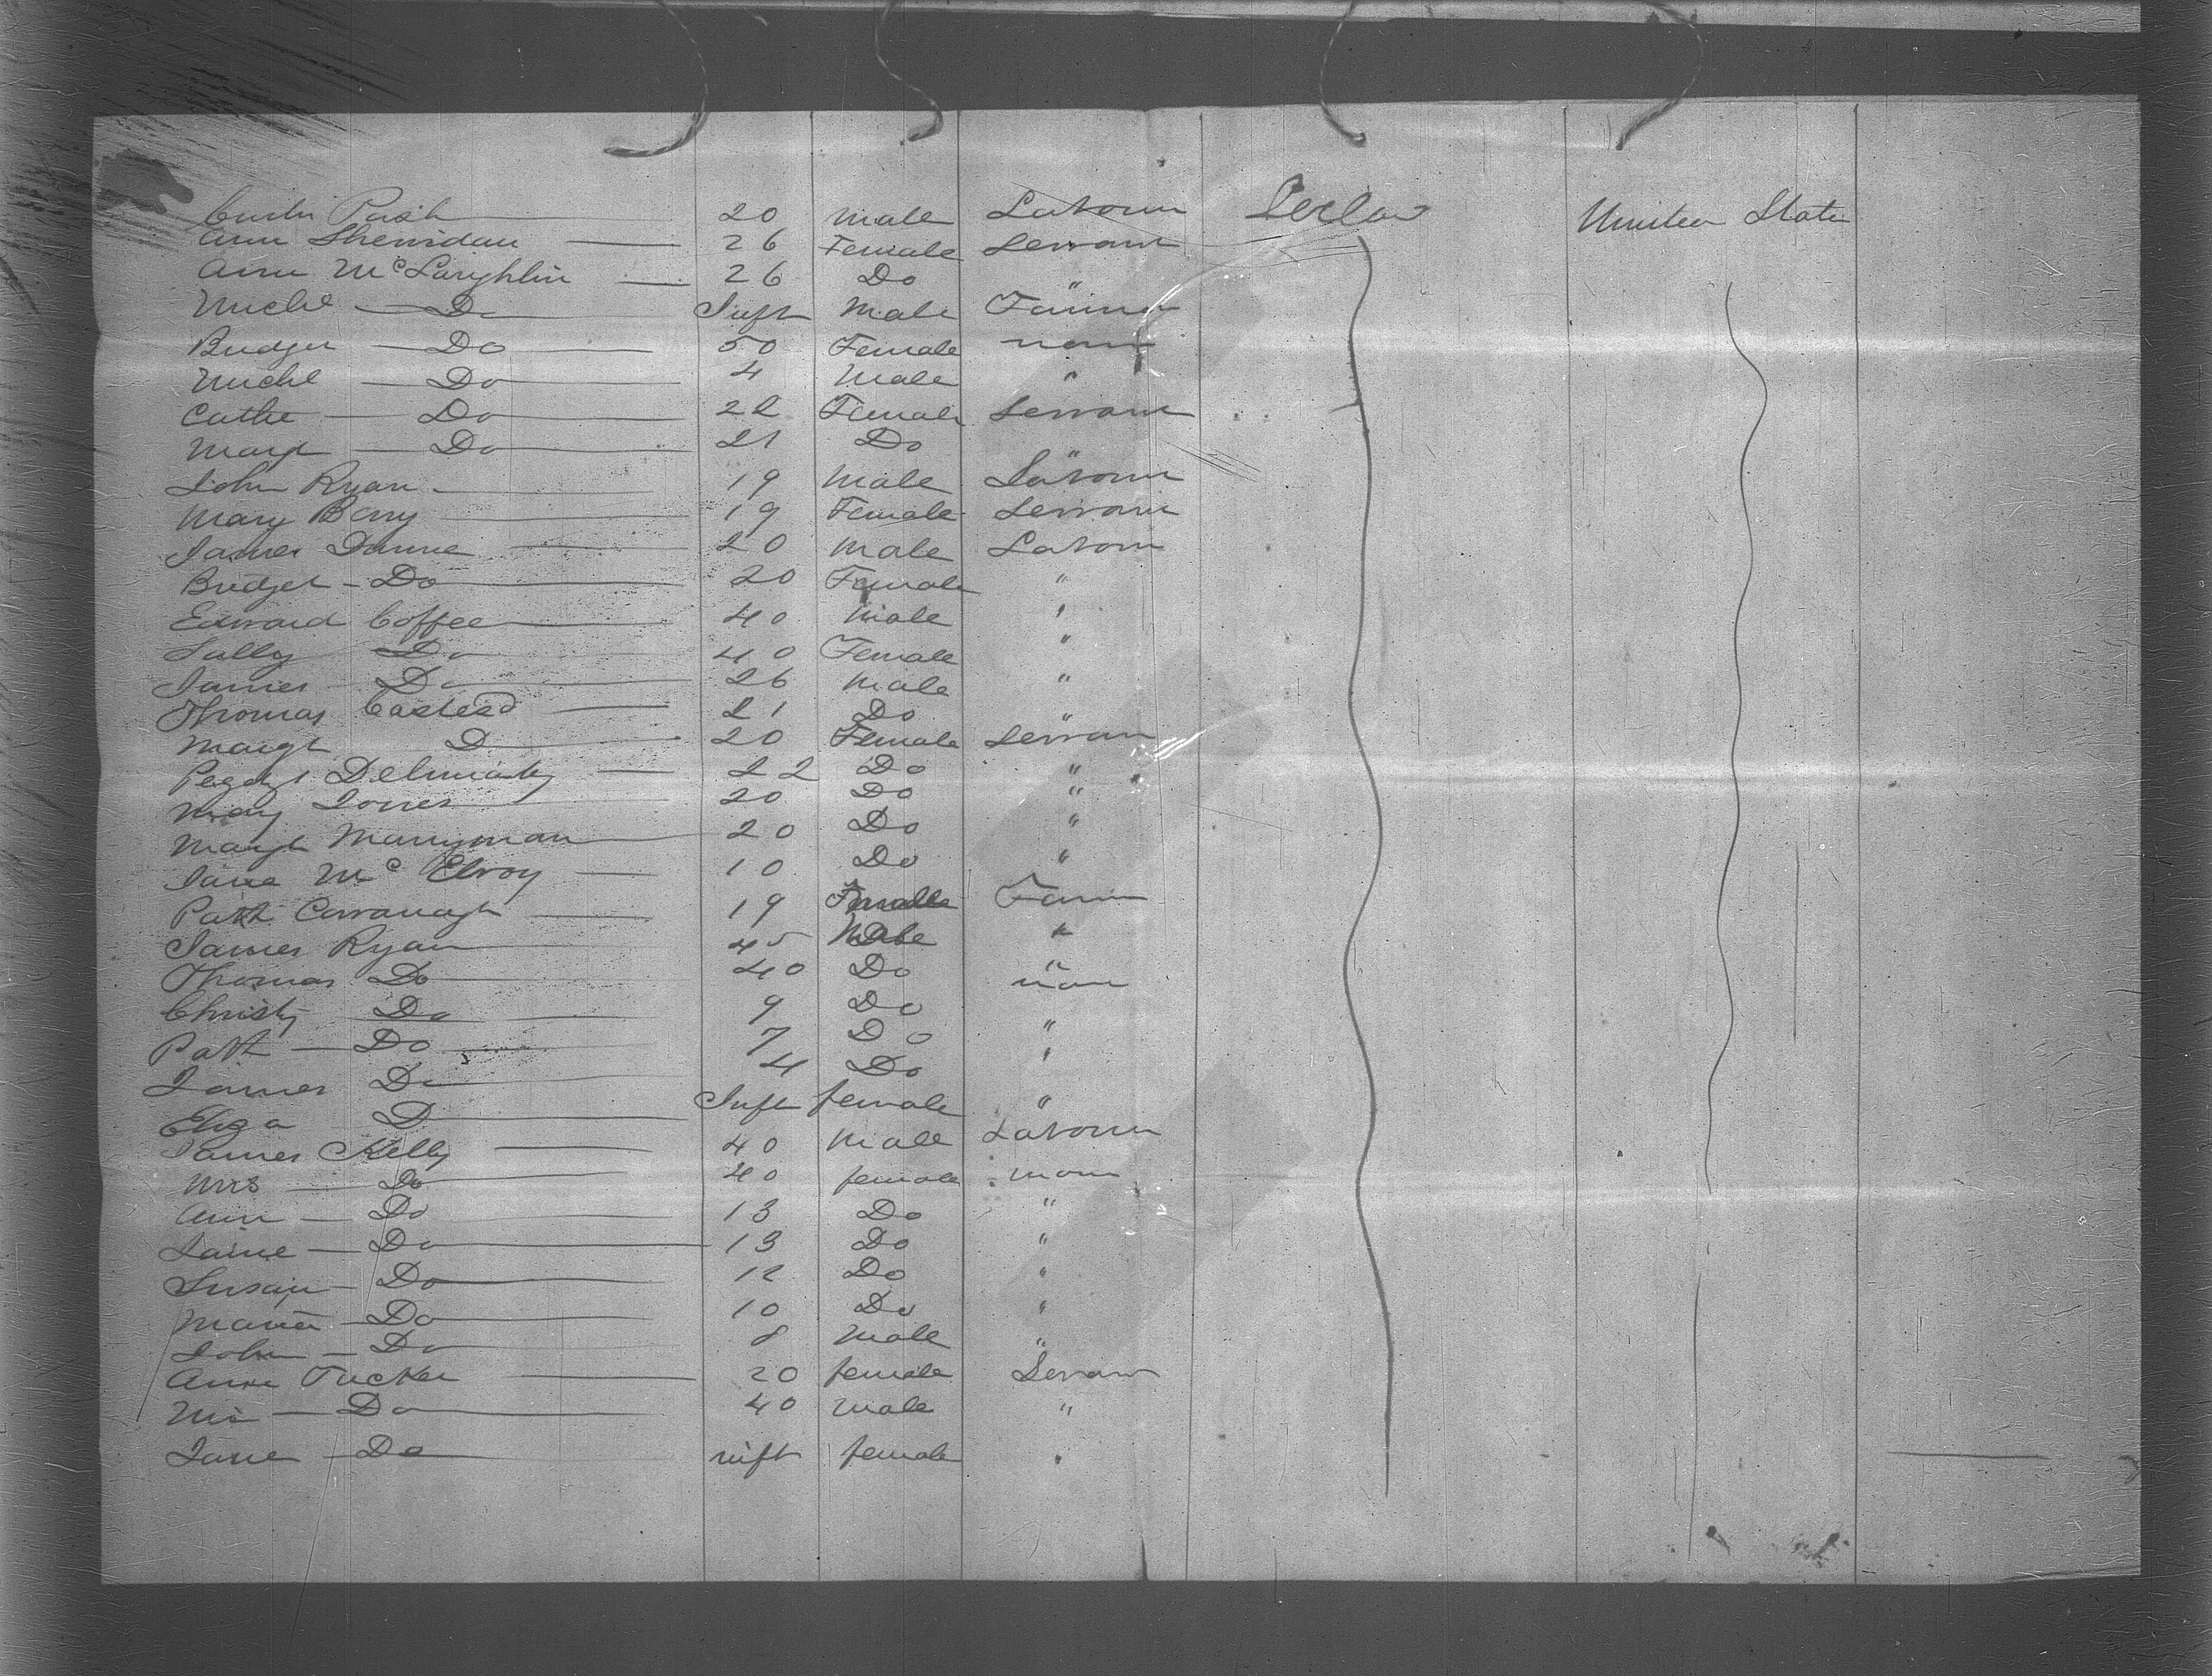 Pash 20 Male Labourer Ireland United States
Ann Sherridan 26 Female Servant
Ann McLaughlin 26 Do "
Michl Do Inft Male Farmer
Bridget Do 50 Female none
Michl Do 4 Male "
Cathe Do 22 Female Servant
Mary Do 21 Do "
John Ryan 19 Male Labourer
Mary Berry 19 Female Servant
James Dunne 20 Male Labour
Bridget Do 20 Female "
Edward Coffee 40 Male "
Sally Do 40 Female "
James Do 26 Male "
Thomas 21 Do "
Margt Do 20 Female Servant
Peggy 22 Do "
Mary Jones 20 Do "
Margt Marryman 20 Do "
Jane McElroy 10 Do "
Patk Cavanagh 19 Female Farm
James Ryan 45 Male "
Thomas Do 40 Do "
Christy Do 9 Do none
Patk Do 7 Do "
James Do 4 Do "
Eliza Do Inft female "
James Kelly 40 Male Labourer
Mrs Do 40 female none
Ann Do 13 Do "
Jane Do 13 Do "
Susan Do 12 Do "
Maria Do 10 Do "
John Do 8 Male "
Anne Tucker 20 female Servant
Do 40 Male "
Jane Do inft female "